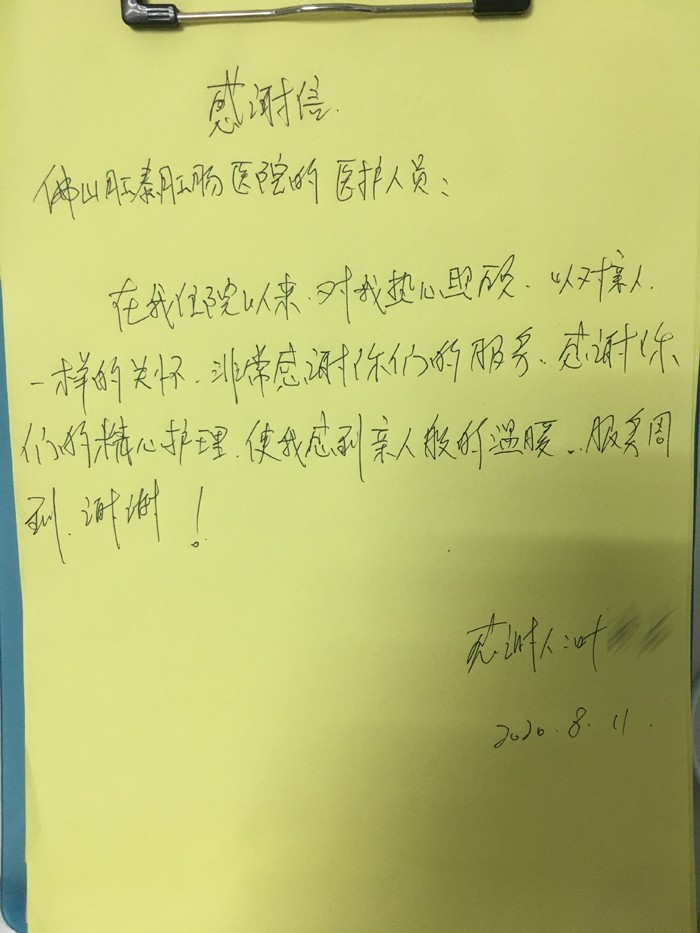 感谢信.
佛山肛泰肛肠医院的医护人员：
在我住院以来.对我热心照顾.以对亲人.
一样的关怀.非常感谢你们的服务.感谢你
们的精心护理.使我感到亲人般的温暖..服务周
到.谢谢！
感谢人：叶
2020.8.11.